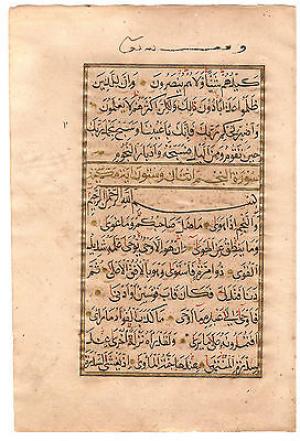 كيدهم شيئا ولا هم ينصرون وان للذين
ظلموا عذابا دون ذلك ولكن اكثرهم لا يعلمون
واصبر لحكم ربك فانك باعيننا وسبح بحمد ربك
حين تقوم ومن الليل فسبحه وادبار النجوم
سورة النجم وستون اية مكية
بسم الله الرحمن الرحيم
والنجم اذا هوى ما ضل صاحبكم وما غوى
وما ينطق عن الهوى ان هو الا وحي يوحى علمه شديد
القوى ذو مرة فاستوى وهو بالافق الاعلى ثم
دنا فتدلى فكان قاب قوسين او ادنى
فاوحى الى عبده ما اوحى ما كذب الفؤاد ما راى
افتمارونه على ما يرى ولقد راه نزلة اخرى عند
سدرة المنتهى عندها جنة الماوى اذ يغشى السدرة